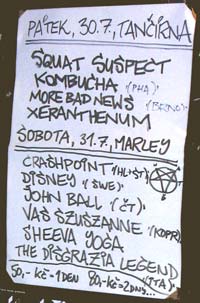 PÁTEK, 30.7, TANČÍRNA
SQUAT SUSPECT
KOMBUCHA (PHA)
MORE BAD NEWS (BRNO)
XERANTHENUM
SOBOTA, 31.7, MARLEY
CRASHPOINT (HL'ST)
DISNEY (SWE)
JOHN BALL (ČT)
VAŠ SZUSZANNE (KDPR)
SHEEVA YOGA
THE DISGRAZIA LEGEND (ITA)
50,- KČ=1 DEN 80,-KČ=2DNY...